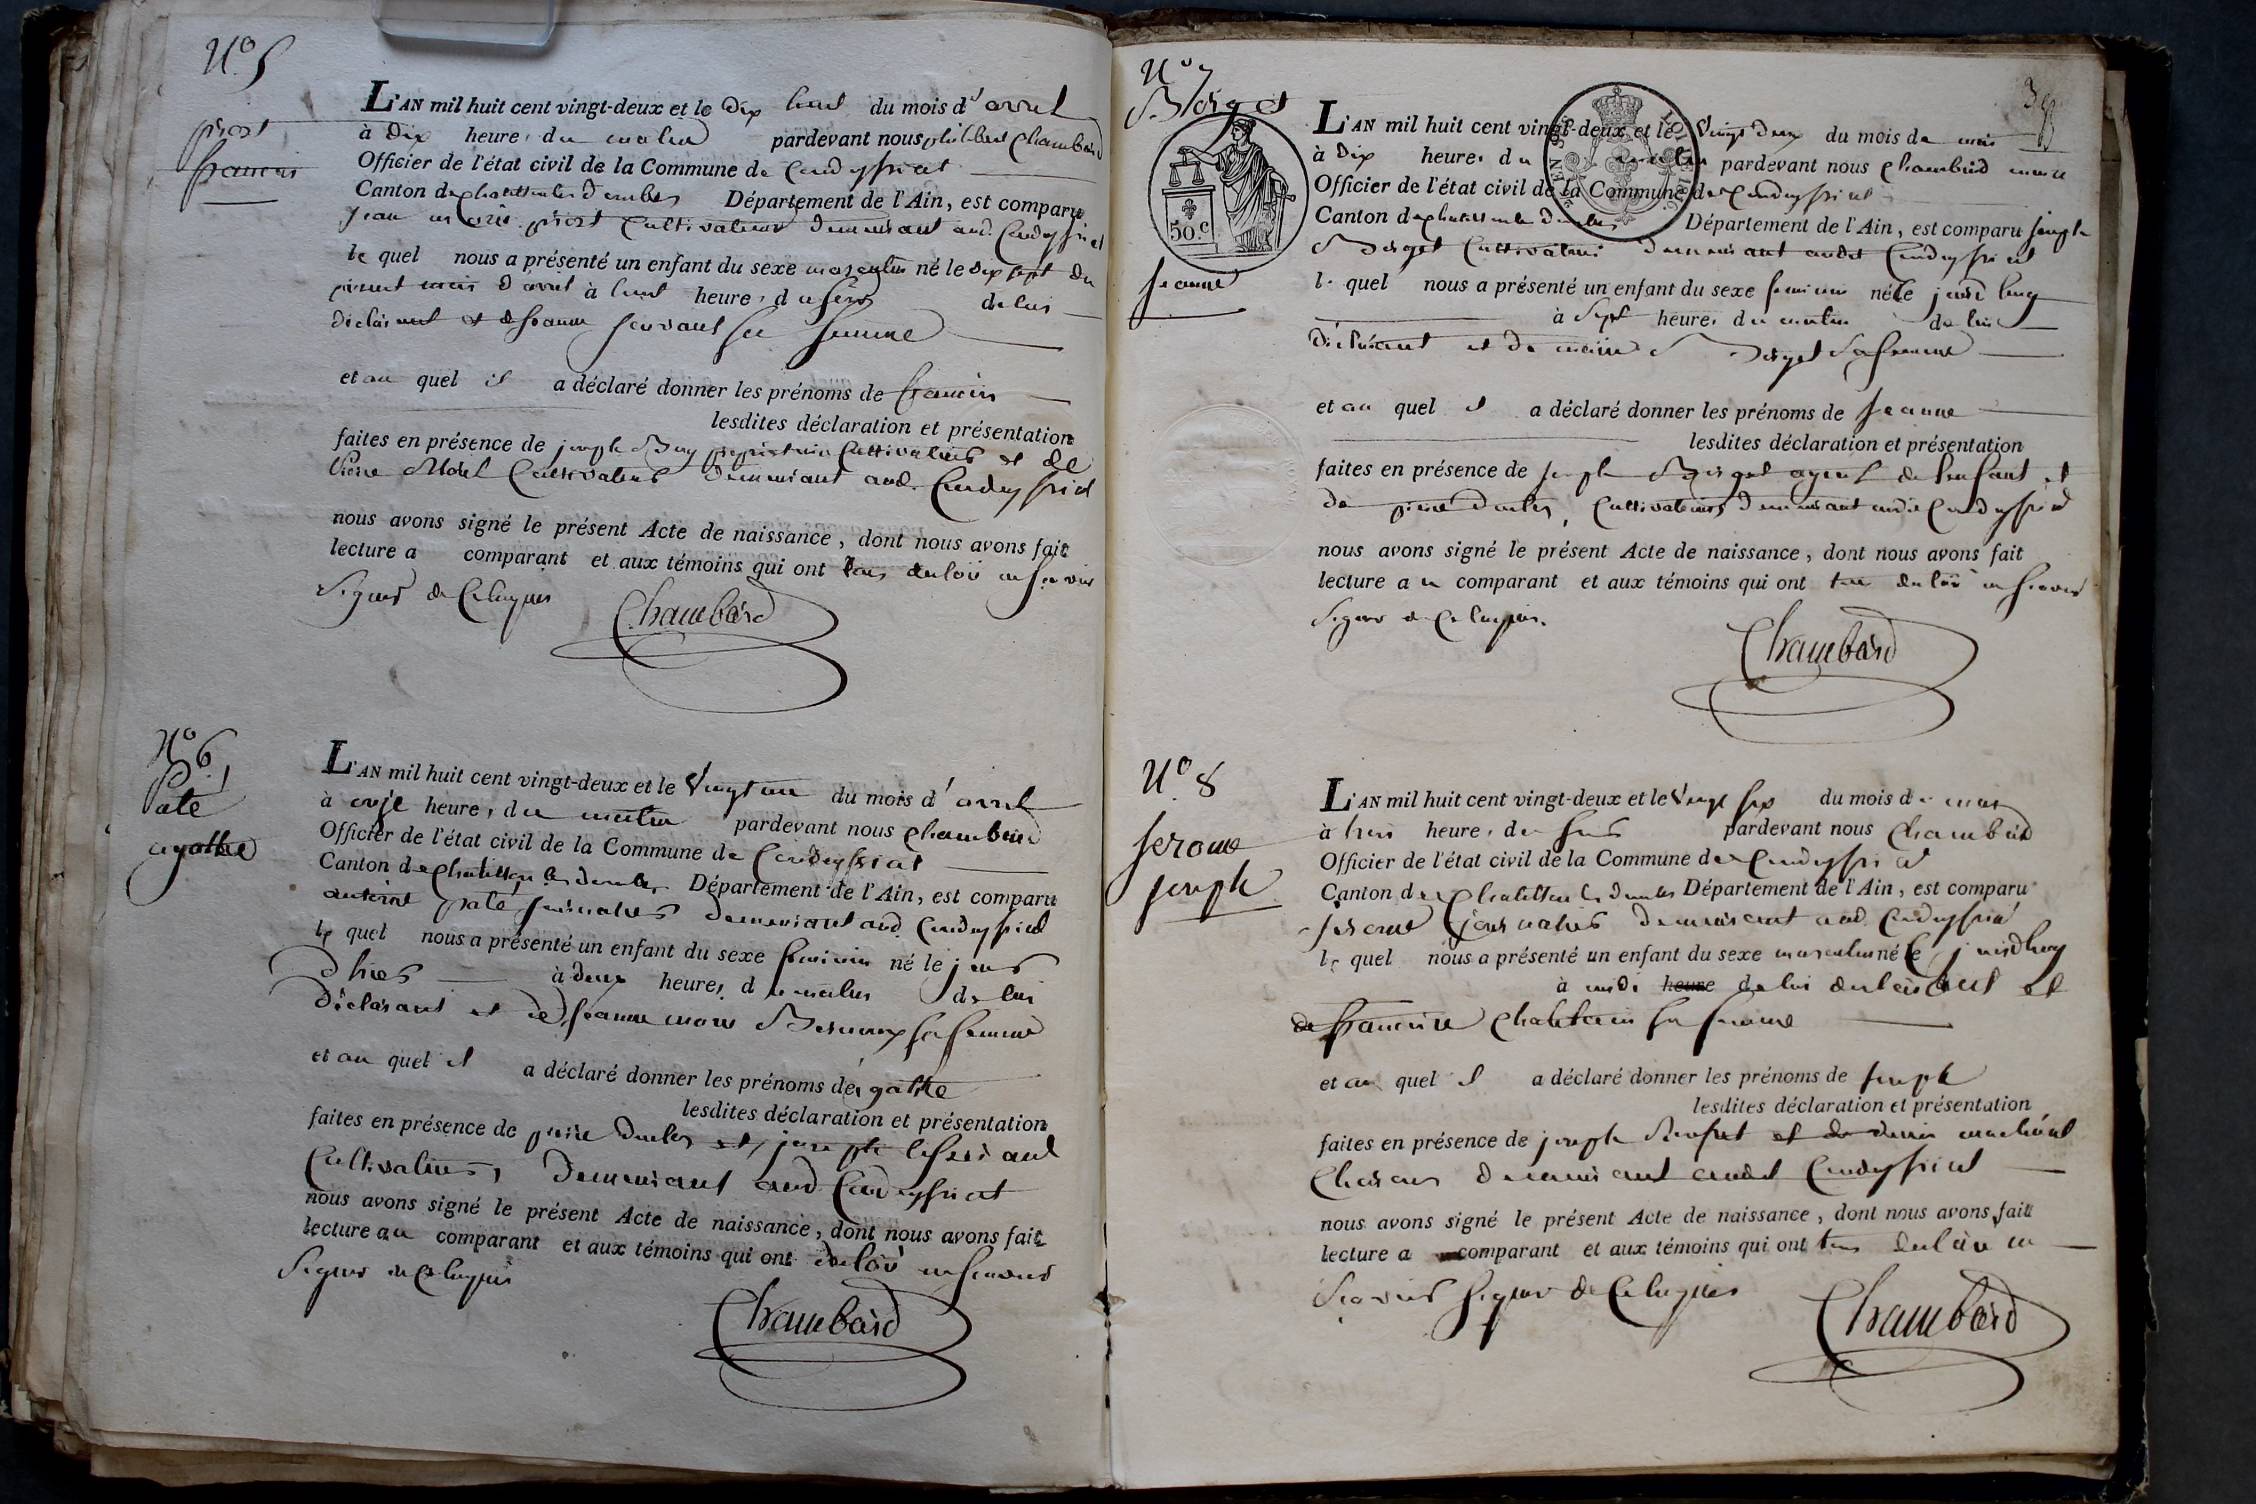 N° 5
piost
francois
L'AN mil huit cent vingt-deux et le dix huit du mois d'avril
à dix heures du matin pardevant nous philibert Chambard
Officier de l'état civil de la Commune de Condeyssiat
Canton de chatillon les dombes Département de l'Ain, est comparu
jean marie piost Cultivateur demeurant aud. Condeyssiat
le quel nous a présenté un enfant du sexe masculin né le dix sept du
présent mois d'avril à huit heures du soir de lui
déclarant et de jeanne servant sa femme
et au quel il a déclaré donner les prénoms de francois
lesdites déclaration et présentation
faites en présence de joseph Buy propriétaire Cultivateur et de
pierre Morel Cultivateur demeurant aud. Condeyssiat
nous avons signé le présent Acte de naissance, dont nous avons fait
lecture a comparant et aux témoins qui ont tous déclaré ne savoir
Signer de Ce Requis
Chambard
N° 6
Paté
agathe
L'AN mil huit cent vingt-deux et le Vingt un du mois d'avril
à onze heures du matin pardevant nous Chambard
Officier de l'état civil de la Commune de Condeyssiat
Canton de Chatillon les dombes Département de l'Ain, est comparu
antoine paté journalier demeurant aud. Condeyssiat
le quel nous a présenté un enfant du sexe feminin né le jour
d'hier à deux heures du matin de lui
Déclarant et de jeanne marie sa femme
et au quel il a déclaré donner les prénoms de agathe
lesdites déclaration et présentation
faites en présence de pierre et joseph
Cultivateurs, Demeurant aud Condeyssiat
nous avons signé le présent Acte de naissance, dont nous avons fait
lecture au comparant et aux témoins qui ont déclaré ne savoir
Signer de Ce Requis
Chambard
39
N° 7
Borget
50.c
jeanne
LOI DE 1816
L'AN mil huit cent vingt-deux et le Vingt deux du mois de mai
à Dix heures du matin pardevant nous Chambard maire
Officier de l'état civil de la Commune de Condeyssiat
Canton de chatillon les dombes Département de l'Ain, est comparu joseph
Borget Cultivateur demeurant audit Condeyssiat
le quel nous a présenté un enfant du sexe feminin né le jourd'huy
à Sept heures du matin de lui
Déclarant et de marie Borget Sa femme
et au quel il a déclaré donner les prénoms de jeanne
lesdites déclaration et présentation
faites en présence de joseph Borget ayeul de l'enfant et
de pierre Cultivateurs demeurant audit Condeyssiat
nous avons signé le présent Acte de naissance, dont nous avons fait
lecture au comparant et aux témoins qui ont tous déclaré ne savoir
Signer de Ce Requis.
Chambard
N° 8
jerome
joseph
L'AN mil huit cent vingt-deux et le Vingt six du mois de mai
à trois heures du soir pardevant nous Chambard
Officier de l'état civil de la Commune de Condeyssiat
Canton de Chatillon les dombes Département de l'Ain, est comparu
jerome journalier demeurant aud Condeyssiat
le quel nous a présenté un enfant du sexe masculin né le jourd'huy
à midi heure de lui déclarant et
de francoise Chatelain sa femme
et au quel il a déclaré donner les prénoms de joseph
lesdites déclaration et présentation
faites en présence de joseph et de denis maréchal
Charron demeurant audit Condeyssiat
nous avons signé le présent Acte de naissance, dont nous avons fait
lecture au comparant et aux témoins qui ont tous déclaré ne
Savoir Signer de Ce Requis
Chambard